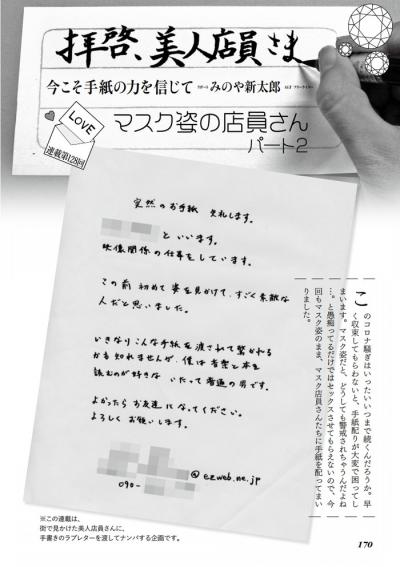 拝啓、美人店員さま
今こそ手紙の力を信じて
リポート みのや新太郎
マスク姿の店員さん
パート2
LOVE
連載第128回
突然のお手紙 失礼します。
といいます。
映像関係の仕事をしています。
この前 初めて 姿を見かけて、すごく素敵な
人だと思いました。
いきなりこんな手紙を渡されて驚かれる
かも知れませんが、僕は音楽と本を
読むのが好きな いたって普通の男です。
よかったら お友達になってください。
よろしく お願いします。
@ezweb.ne.jp
090-
このコロナ騒ぎはいったいいつまで続くんだろうか。早
く収束してもらわないと、手紙配りが大変で困ってし
まいます。マスク姿だと、どうしても警戒されちゃうんだよね
…。と愚痴ってるだけではセックスさせてもらえないので、今
回もマスク姿のまま、マスク店員さんたちに手紙を配ってまい
りました。
※この連載は、
街で見かけた美人店員さんに、
手書きのラブレターを渡してナンパする企画です。
170